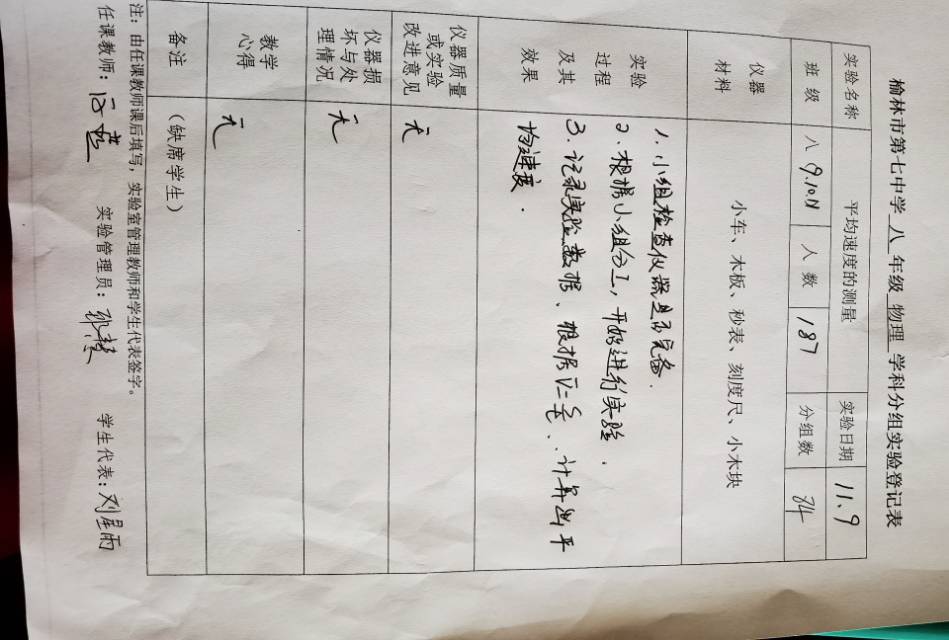 榆林市第七中学 八 年级 物理 学科分组实验登记表
实验名称 平均速度的测量 实验日期 11.9
班级 八9.10.11 人数 187 分组数 84
仪器材料 小车、木板、秒表、刻度尺、小木块
实验
过程
及其
效果
1. 小组检查仪器是否完备.
2. 根据小组分工，开始进行实验.
3. 记录实验数据、根据 、计算出平
均速度.
仪器质量
或实验
改进意见
无
仪器损
坏与处
理情况
无
教学
心得
无
备注 （缺席学生）
注：由任课教师课后填写，实验室管理教师和学生代表签字。
任课教师： 实验管理员： 学生代表：刘星雨